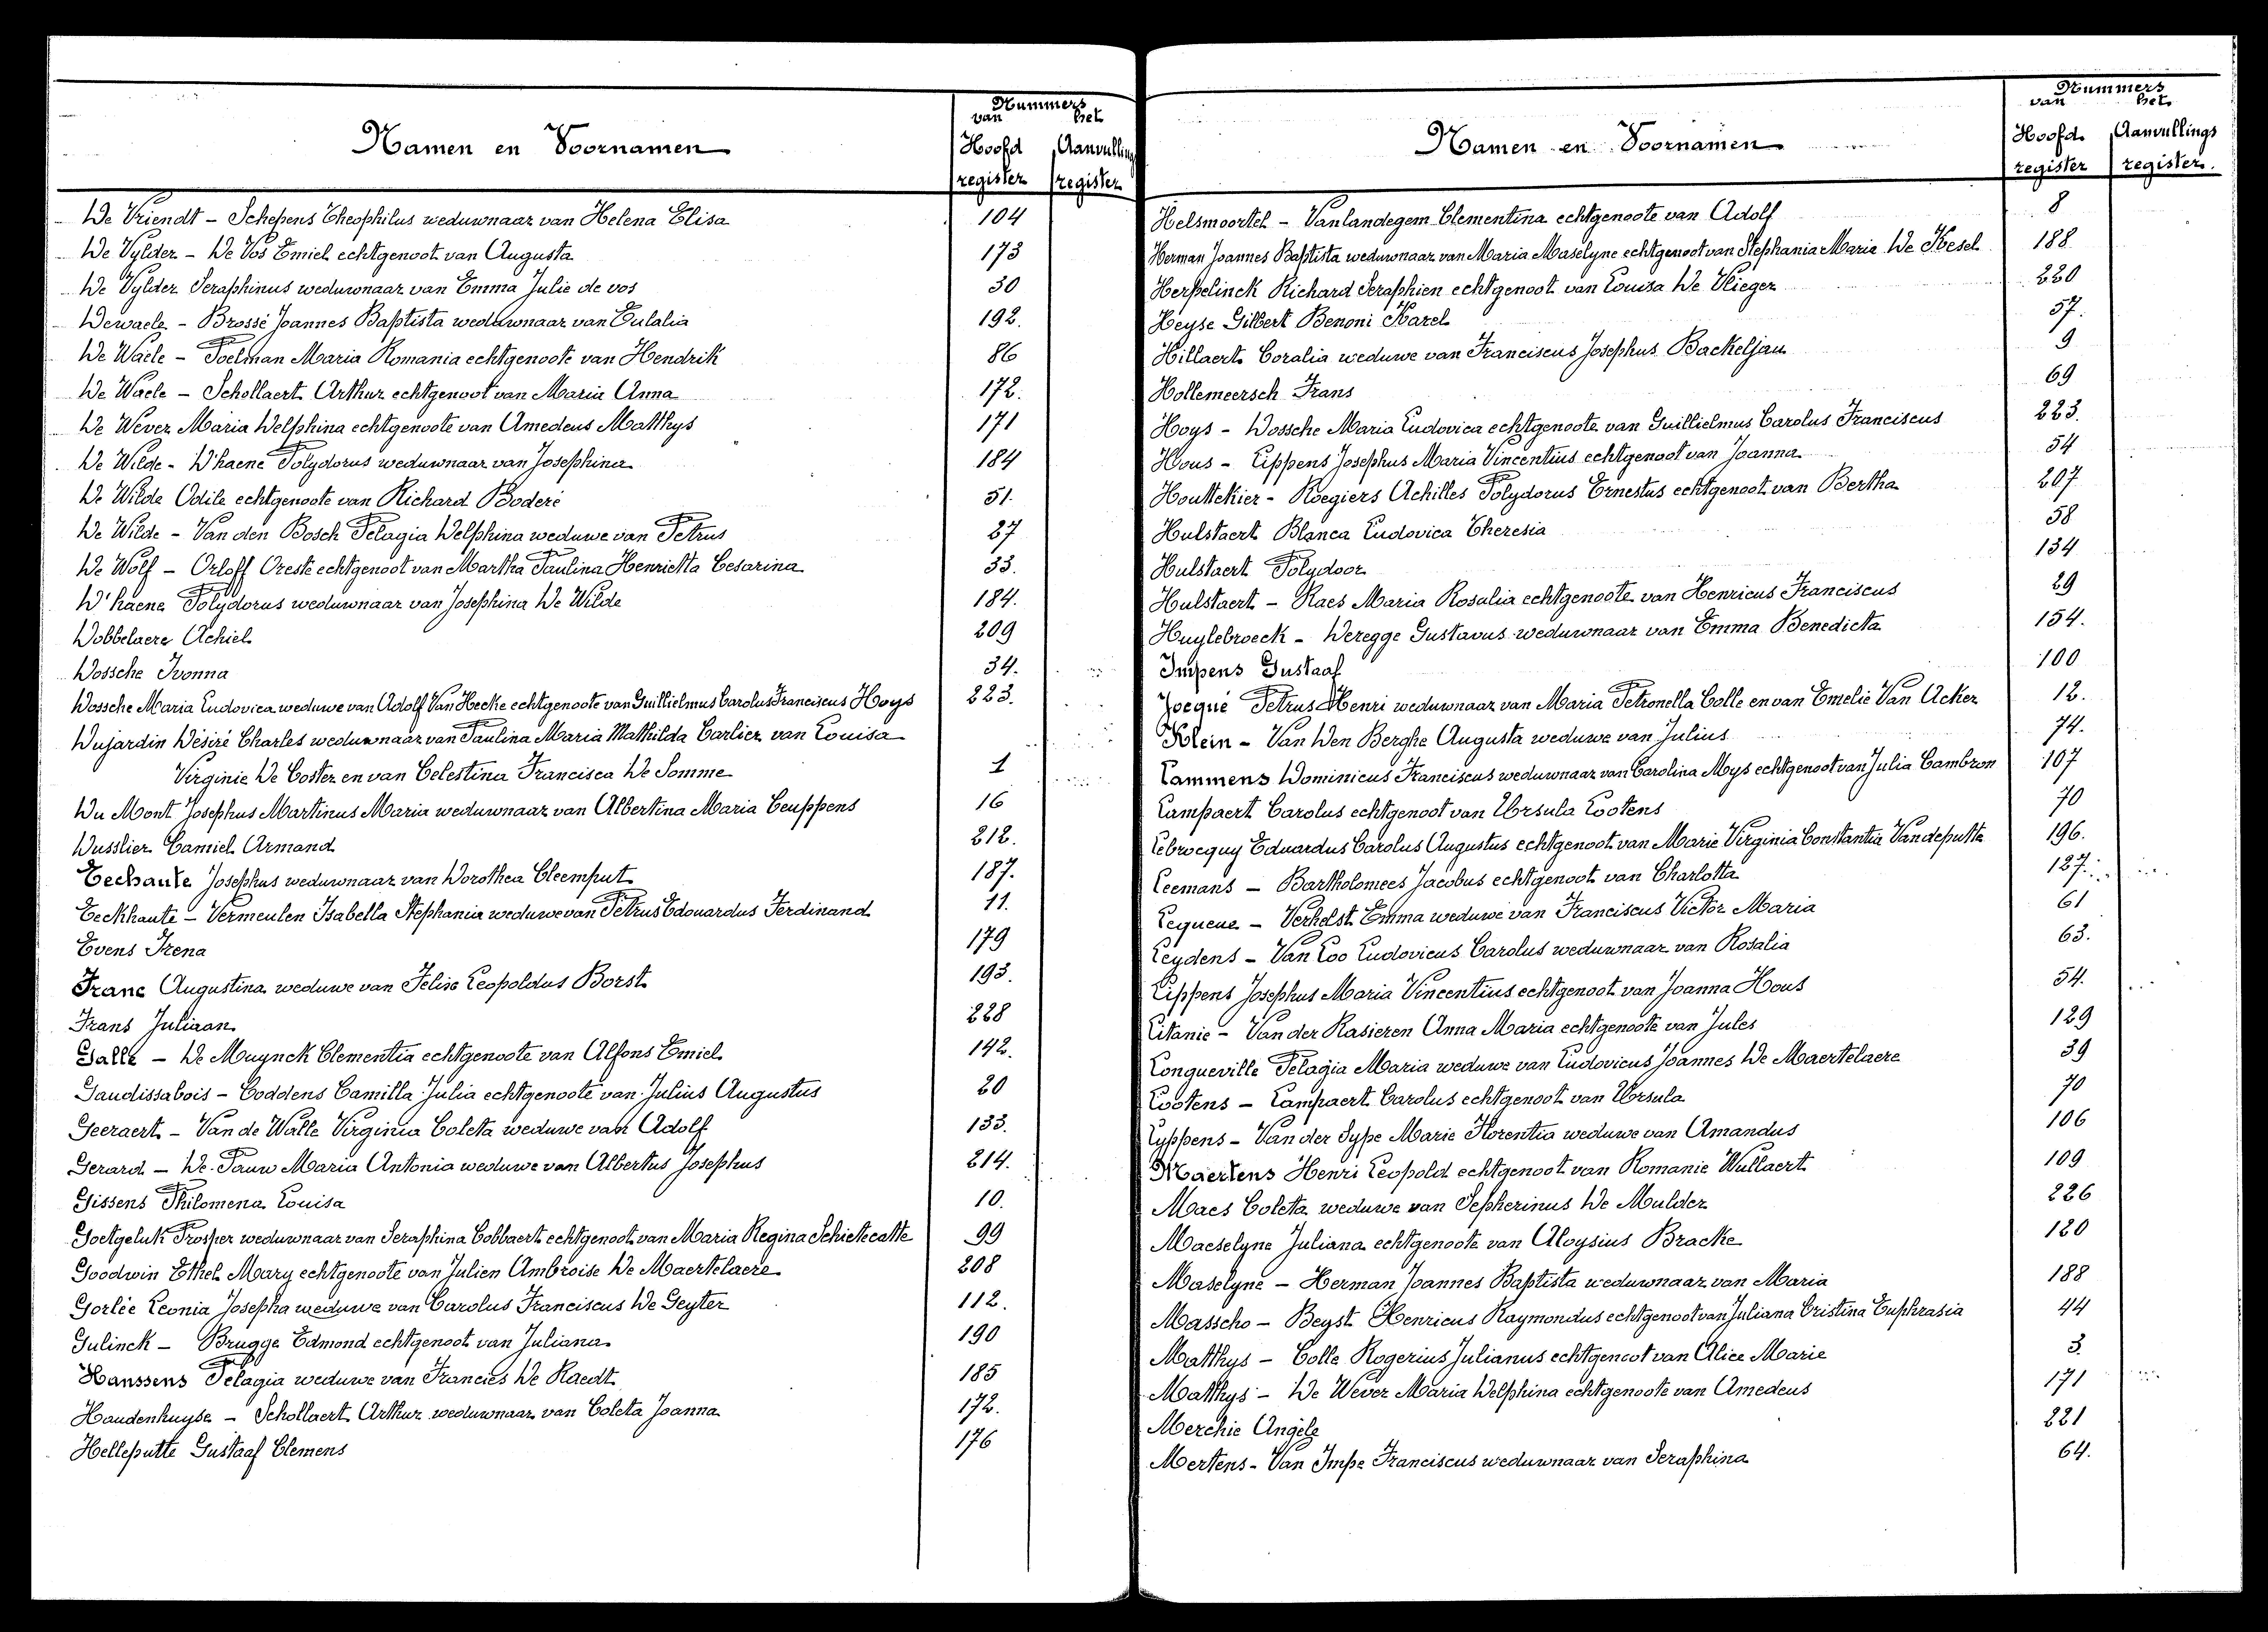 Nummers
van het
Namen en Voornamen
Hoofd Aanvullings
register register
De Vriendt - Schepens Theophilus weduwnaar van Helena Elisa 104
De Vylder - De Vos Emiel echtgenoot van Augusta 173
De Vylder Seraphinus weduwnaar van Emma Julie de vos 30
Dewaele - Brossé Joannes Baptista weduwnaar van Eulalia 192.
De Waele - Poelman Maria Romania echtgenoote van Hendrik 86
De Waele - Schollaert Arthur echtgenoot van Maria Anna 172.
De Wever Maria Delphina echtgenoote van Amedeus Matthys 171
De Wilde - D'haene Polydorus weduwnaar van Josephina 184
De Wilde Odile echtgenoote van Richard Boderé 51.
De Wilde - Van den Bosch Pelagia Delphina weduwe van Petrus 27
De Wolf - Orloff Oreste echtgenoot van Martha Paulina Henrietta Cesarina 33.
D'haene Polydorus weduwnaar van Josephina De Wilde 184.
Dobbelaere Achiel 209
Dossche Ivonna 34.
Dossche Maria Ludovica weduwe van Adolf Van Hecke echtgenoote van Guillielmus Carolus Franciscus Hoys 223.
Dujardin Désiré Charles weduwnaar van Paulina Maria Mathilda Carlier van Louisa
Virginie De Coster en van Celestina Francisca De Somme 1
Du Mont Josephus Martinus Maria weduwnaar van Albertina Maria Ceuppens 16
Dusslier Camiel Armand 212.
Eechaute Josephus weduwnaar van Dorothea Cleemput 187.
Eeckhaute - Vermeulen Isabella Stephania weduwe van Petrus Edouardus Ferdinand 11.
Evens Irena 179
Franc Augustina weduwe van Felix Leopoldus Borst 193.
Frans Juliaan 228
Galle - De Muynck Clementia echtgenoote van Alfons Emiel 142.
Gaudissabois - Coddens Camilla Julia echtgenoote van Julius Augustus 20
Geeraert - Van de Walle Virginia Coleta weduwe van Adolf 133.
Gerard - De Pauw Maria Antonia weduwe van Albertus Josephus 214.
Gissens Philomena Louisa 10.
Goetgeluk Prosper weduwnaar van Seraphina Cobbaert echtgenoot van Maria Regina Schietecatte 99
Goodwin Ethel Mary echtgenoote van Julien Ambroise De Maertelaere 208
Gorlée Leonia Josepha weduwe van Carolus Franciscus De Geyter 112.
Gulinck - Brugge Edmond echtgenoot van Juliana 190
Hanssens Pelagia weduwe van Francies De Raedt 185
Haudenhuyse - Schollaert Arthur weduwnaar van Coleta Joanna 172.
Helleputte Gustaaf Clemens 176
Nummers
van het
Namen en Voornamen
Hoofd Aanvullings
register register.
Helsmoortel - Vanlandegem Clementina echtgenoote van Adolf 8
Herman Joannes Baptista weduwnaar van Maria Maselyne echtgenoot van Stephania Maria De Kesel 188
Herpelinck Richard Seraphien echtgenoot van Louisa De Vlieger 220
Heyse Gilbert Benoni Karel 57.
Hillaert Coralia weduwe van Franciscus Josephus Backeljau 9
Hollemeersch Frans 69
Hoys - Dossche Maria Ludovica echtgenoote van Guillielmus Carolus Franciscus 223.
Hous - Lippens Josephus Maria Vincentius echtgenoot van Joanna 54
Houttekier - Roegiers Achilles Polydorus Ernestus echtgenoot van Bertha 207
Hulstaert Blanca Ludovica Theresia 58
Hulstaert Polydoor 134
Hulstaert - Raes Maria Rosalia echtgenoote van Henricus Franciscus 29
Huylebroeck - Deregge Gustavus weduwnaar van Emma Benedicta 154.
Impens Gustaaf 100
Jocqué Petrus Henri weduwnaar van Maria Petronella Colle en van Emelie Van Acker 12.
Klein - Van Den Berghe Augusta weduwe van Julius 74.
Lammens Dominicus Franciscus weduwnaar van Carolina Mys echtgenoot van Julia Cambron 107
Lampaert Carolus echtgenoot van Ursula Lootens 70
Lebrocquy Eduardus Carolus Augustus echtgenoot van Marie Virginia Constantia Vandeputte 196.
Leemans - Bartholomees Jacobus echtgenoot van Charlotta 127.
Lequeue - Verhelst Emma weduwe van Franciscus Victor Maria 61
Leydens - Van Loo Ludovicus Carolus weduwnaar van Rosalia 63.
Lippens Josephus Maria Vincentius echtgenoot van Joanna Hous 54.
Litanie - Van der Rasieren Anna Maria echtgenoote van Jules 129
Longueville Pelagia Maria weduwe van Ludovicus Joannes De Maertelaere 39
Lootens - Lampaert Carolus echtgenoot van Ursula 70
Lyppens - Van der Sype Marie Florentia weduwe van Amandus 106
Maertens Henri Leopold echtgenoot van Romanie Wullaert 109
Maes Coleta weduwe van Sepherinus De Mulder 226
Maeselyne Juliana echtgenoote van Aloysius Bracke 120
Maselyne - Herman Joannes Baptista weduwnaar van Maria 188
Masscho - Beyst Henricus Raymondus echtgenoot van Juliana Cristina Euphrasia 44
Matthys - Colle Rogerius Julianus echtgenoot van Alice Marie 3.
Matthys - De Wever Maria Delphina echtgenoote van Amedeus 171
Merchie Angèle 221
Mertens - Van Impe Franciscus weduwnaar van Seraphina 64.